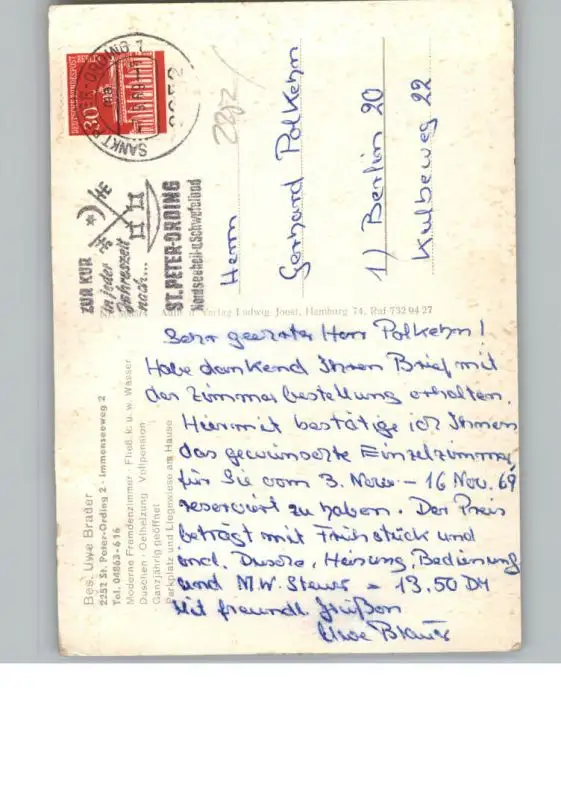 Bes. Uwe Brader
2252 St. Peter-Ording 2 · Immenseeweg 2
Tel. 04863-616
Moderne Fremdenzimmer · Fließ. k. u. w. Wasser
Duschen · Oelheizung · Vollpension
Ganzjährig geöffnet
Parkplatz und Liegewiese am Hause
Verlag Ludwig Joost, Hamburg 74, Ruf 732 94 27
Sehr geehrter Herr Polkehn!
Habe dankend Ihren Brief mit
der Zimmerbestellung erhalten.
Hiermit bestätige ich Ihnen
das gewünschte Einzelzimmer,
für Sie vom 3. Nov - 16 Nov. 69
reserviert zu haben. Der Preis
beträgt mit Frühstück und
incl. Dusche, Heizung, Bedienung
und M.W. Steuer = 13.50 DM
Mit freundl. Grüßen
Uwe Brader
DEUTSCHE BUNDESPOST BERLIN
30
SANKT PETER-ORDING 1
2252
ZUR KUR
in jeder
Jahreszeit
nach...
ST. PETER-ORDING
Nordseeheil-u Schwefelbad
Herrn
Gerhard Polkehn
1) Berlin 20
Kulbeweg 22